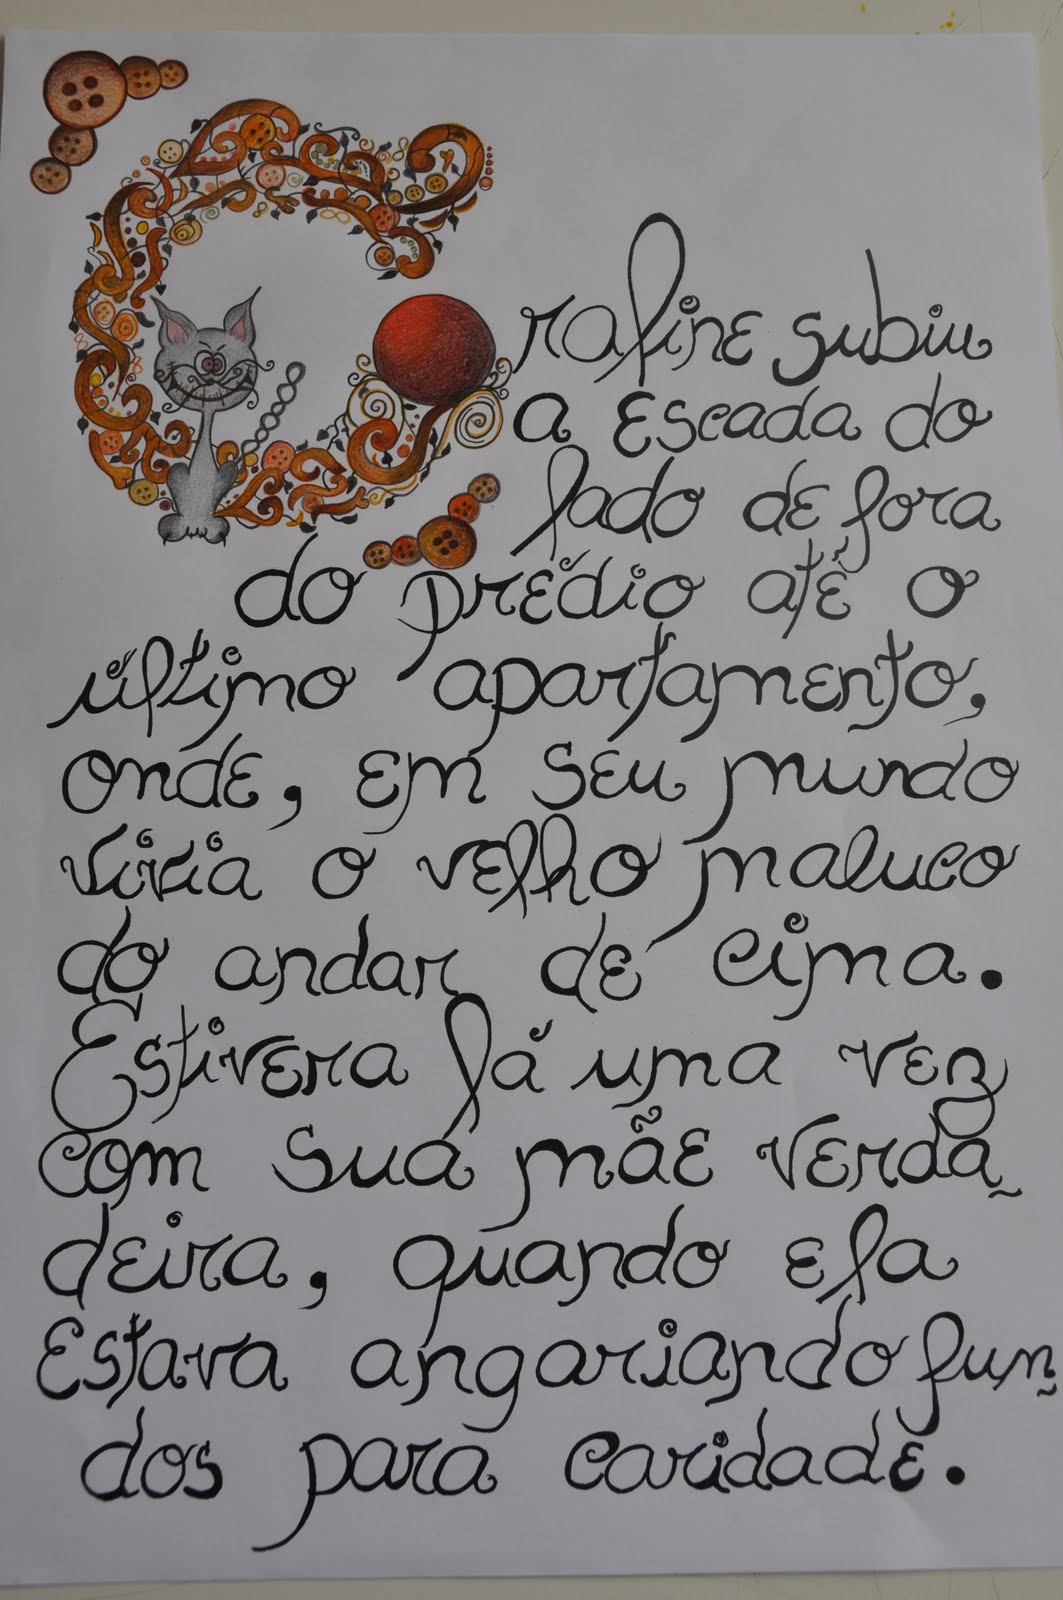 Coraline subiu
a escada do
lado de fora
do prédio até o
último apartamento,
onde, em seu mundo
vivia o velho maluco
do andar de cima.
Estivera lá uma vez
com sua mãe verda-
deira, quando ela
estava angariando fun-
dos para caridade.